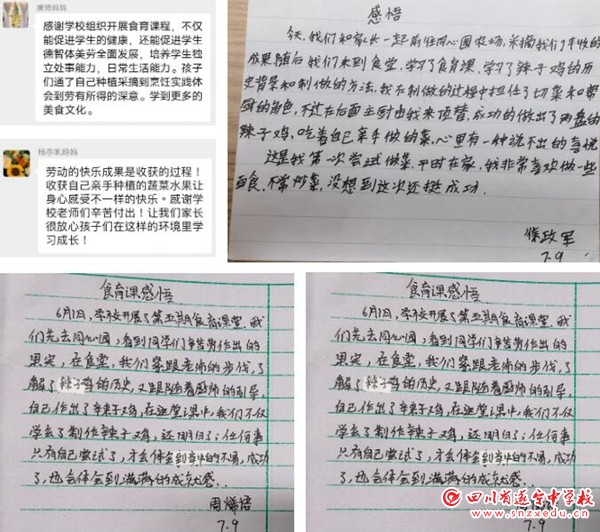 唐烯妈妈
感谢学校组织开展食育课程，不仅
能促进学生的健康，还能促进学生
德智体美劳全面发展，培养学生独
立处事能力，日常生活能力。孩子
们通了自己种植采摘到烹饪实践体
会到劳有所得的深意。学到更多的
美食文化。
妈妈
劳动的快乐成果是收获的过程！
收获自己亲手种植的蔬菜水果让
身心感受不一样的快乐。感谢学
校老师们辛苦付出！让我们家长
很放心孩子们在这样的环境里学
习成长！
感悟
今天，我们和家长一起前往同心园农场，采摘我们丰收的
成果，随后我们来到食堂，学习了食育课，学习了辣子鸡的历
史背景和制做的方法，我在制做的过程中担任了切菜和帮
厨的角色，不过在后面主厨由我来顶替，成功的做出了两盘的
辣子鸡，吃着自己亲手做的菜，心里有一种说不出的喜悦
这是我第一次尝试做菜，平时在家，我非常喜欢做一些
面食，不常炒菜，没想到这次还挺成功.
政军
7.9
食育课感悟
6月1日，学校开展了第五期食育课堂，我
们先去同心园，看到同学们辛苦劳作出的
果实，在食堂，我们紧跟老师的步伐，了
解了辣子鸡的历史，又跟随着厨师的引导，
自己作出了辛辣子鸡，在这堂课中，我们不仅
学会了制作辣子鸡，还明白了：任何事
只有自己尝试了，才会体会到当中的不易，成功
了，还会体会到满满的成就感.
周烯语
7.9
食育课感悟
6月1日，学校开展了第五期食育课堂，我
们先去同心园，看到同学们辛苦劳作出的
果实，在食堂，我们紧跟老师的步伐，了
解了辣子鸡的历史，又跟随着厨师的引导，
自己作出了辛辣子鸡，在这堂课中，我们不仅
学会了制作辣子鸡，还明白了：任何事
只有自己尝试了，才会体会到当中的不易，成功
了，还会体会到满满的成就感.
周
7.9
四川省遂宁中学校
www.snzxedu.cn